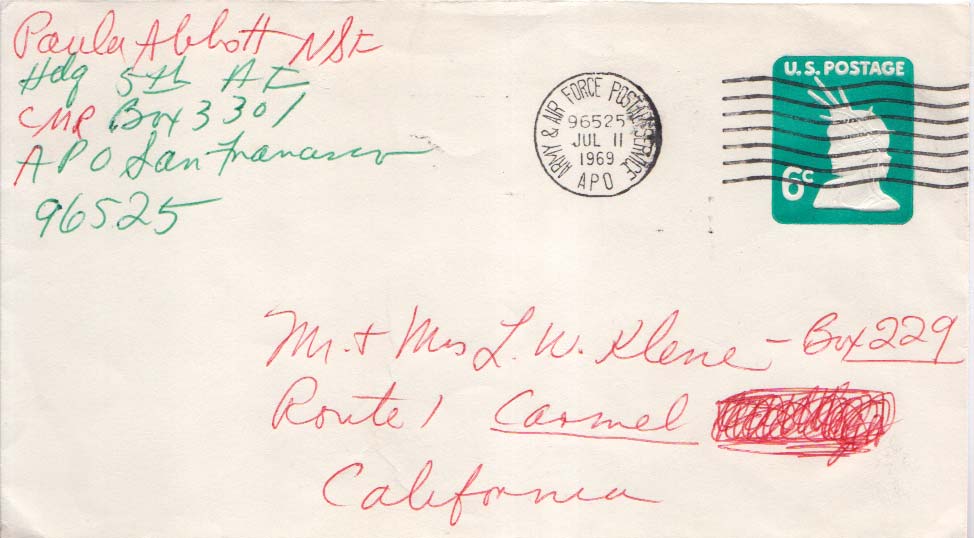 Paula Abbott NSF
Hdq 5th AF
CMR Box 3301
APO San Francisco
96525
ARMY & AIR FORCE POSTAL SERVICE
96525
JUL 11
1969
APO
U.S. POSTAGE
6c
Mr. + Mrs L. W. Klene - Box 229
Route 1 Carmel
California